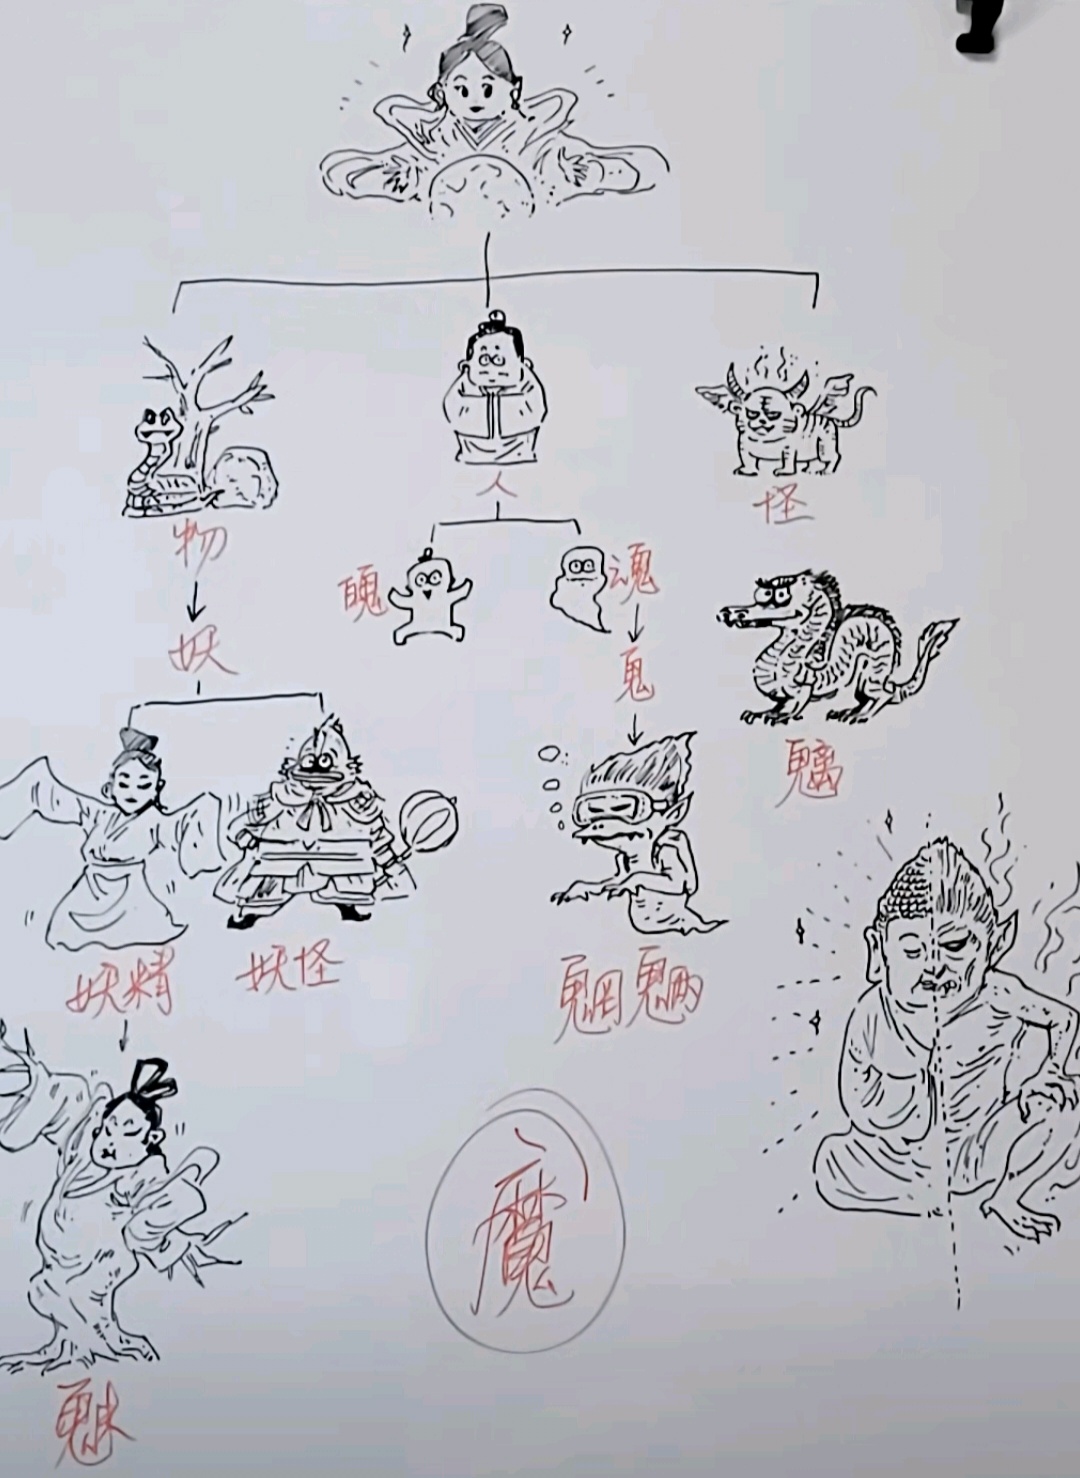 人
怪
物
魄
魂
妖
鬼
魑
妖精
妖怪
魍魉
魔
魅